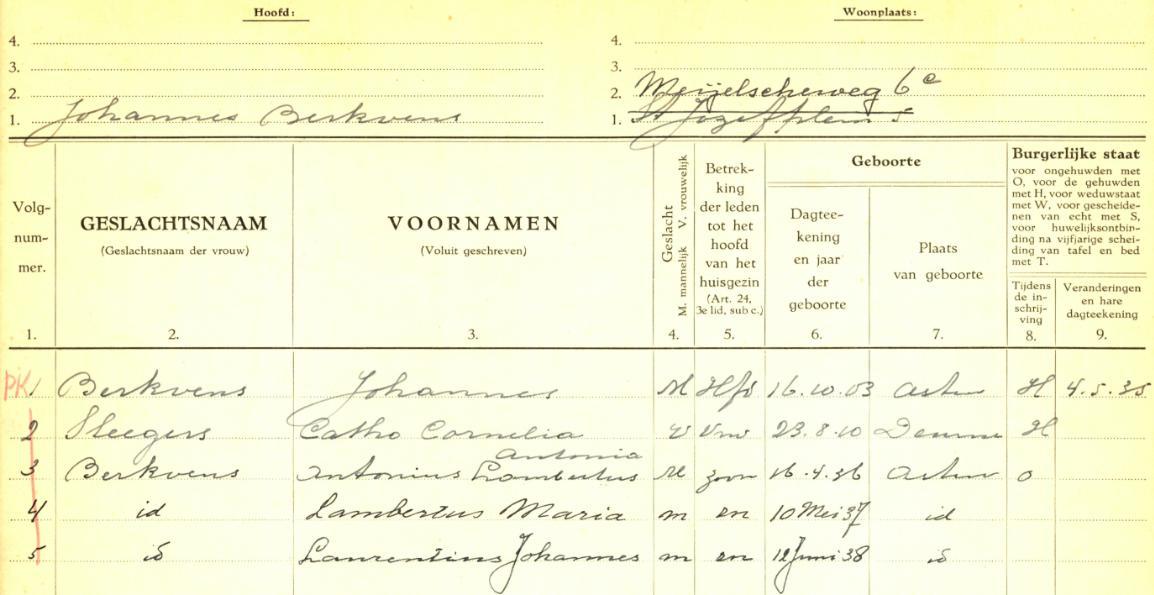 Hoofd: Woonplaats:
4. 4.
3. 3.
2. 2. Meijelscheweg 6c
1. Johannes Berkvens 1. St Jozefplein 5
Volg-
num-
mer.
1.
GESLACHTSNAAM
(Geslachtsnaam der vrouw)
2.
VOORNAMEN
(Voluit geschreven)
3.
Geslacht
M. mannelijk V. vrouwelijk
4.
Betrek-
king
der leden
tot het
hoofd
van het
huisgezin
(Art. 24,
3e lid, sub c.)
5.
Geboorte
Dagtee-
kening
en jaar
der
geboorte
6.
Plaats
van geboorte
7.
Burgerlijke staat
voor ongehuwden met
O, voor de gehuwden
met H, voor weduwstaat
met W, voor gescheide-
nen van echt met S,
voor huwelijksontbin-
ding na vijfjarige schei-
ding van tafel en bed
met T.
Tijdens
de in-
schrij-
ving
8.
Veranderingen
en hare
dagteekening
9.
PK 1 Berkvens Johannes M Hfd 16.10.03 Asten H 4.5.35
2 Sleegers Catho Cornelia V Vrw 23.8.10 Deurne H
Antonia
3 Berkvens Antonius Lambertus M zoon 16.4.36 Asten O
4 id Lambertus Maria m zn 10 Mei 37 id
5 id Laurentius Johannes m zn 12 Juni 38 id